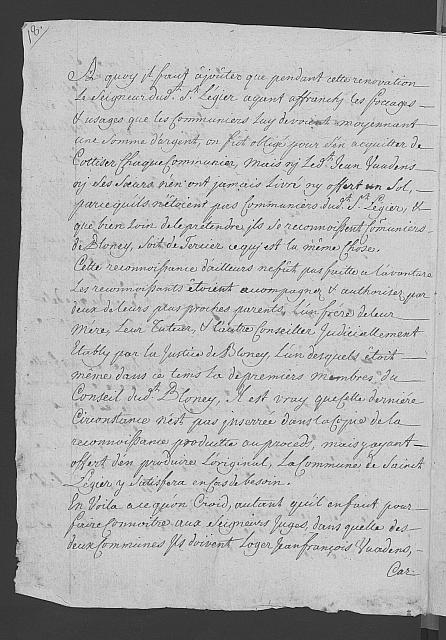 18.
A quoy jl faut ajoûter que pendant cette renovation
le Seigneur dud.t S.t Légier ayant affranchy les focages
& usages que les Communiers luy devoient moyennant
une somme d'argent, on fut obligé pour s'en acquitter de
Cottiser Chaque Communier, mais ny led.t Jean Vuadens
ny ses Sœurs n'en ont jamais livré ny offert un Sol,
parcequ'ils n'etoient pas Communiers dud.t S.t Légier, &
que bien loin de le prétendre, jls se reconnoissent Com̄uniers
de Bloney, soit de Tercier ce qui est la même Chose.
Cette reconnoissance d'ailleurs ne fût pas faitte a l'avanture
Les reconnoissants étoient accompagnez & authorisez par
deux de leurs plus proches parents, l'un frere de leur
Mére, leur Tuteur, & l'autre Conseiller Judiciallement
Etably par la Justice de Bloney, l'un desquels étoit
même dans ce tems là des premiers membres du
Conseil dud.t Bloney, jl est vray que cette derniére
Circonstance n'est pas inserrée dans la Copie de la
reconnoissance produitte au procés, mais y ayant
offert d'en produire l'original, la Commune de Saint
Légier y satisfera en cas de besoin.
En Voila a ce qu'on Croid, autant qu'il en faut pour
faire connoitre aux Seigneurs Juges, dans quelle des
deux Communes jls doivent loger Jean françois Vuadens,
Car